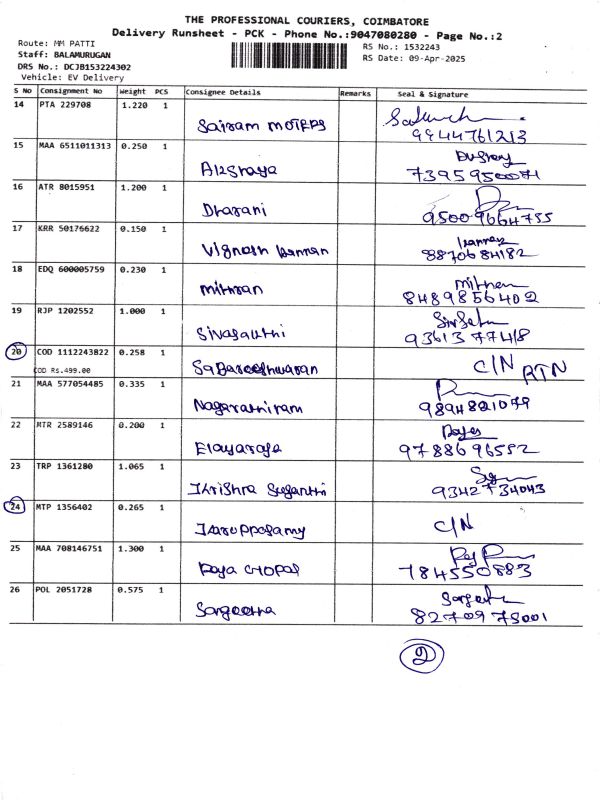 THE PROFESSIONAL COURIERS, COIMBATORE
Delivery Runsheet - PCK - Phone No.:9047080280 - Page No.:2
Route: MM PATTI
Staff: BALAMURUGAN
DRS No.: DCJB153224302
Vehicle: EV Delivery
RS No.: 1532243
RS Date: 09-Apr-2025
S No Consignment No Weight PCS Consignee Details Remarks Seal & Signature
14 PTA 229708 1.220 1 Sairam MOTERS
9944761213
15 MAA 6511011313 0.250 1 Akshaya
7395950071
16 ATR 8015951 1.200 1 Dharani
95009664755
17 KRR 50176622 0.150 1 Vignesh kannan
8870684182
18 EDQ 600005759 0.230 1 Mithran
Mithran
8489856402
19 RJP 1202552 1.000 1 Sivasakthi
9361377418
20 COD 1112243822 0.258 1 Sabareeshwaran C/N RTN
COD Rs.499.00
21 MAA 577054485 0.335 1 Nagarathiram
9894821079
22 MTR 2589146 0.200 1 Elayaraja
9788696552
23 TRP 1361280 1.065 1 Krishna Suganthi
9342734043
24 MTP 1356402 0.265 1 Karuppasamy C/N
25 MAA 708146751 1.300 1 Raja Gopal
784550883
26 POL 2051728 0.575 1 Sangeetha
8270975001
2